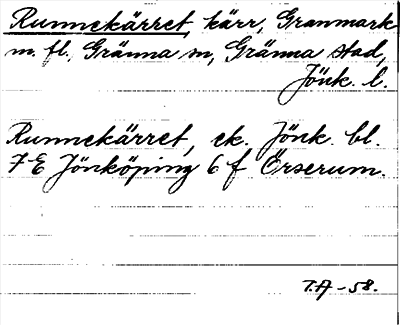 Runnekärret, kärr, Granmark
m. fl., Gränna sn, Gränna stad,
Jönk. l.
Runnekärret, ek. Jönk. bl.
7 E Jönköping 6 f Örserum.
T.A -58.